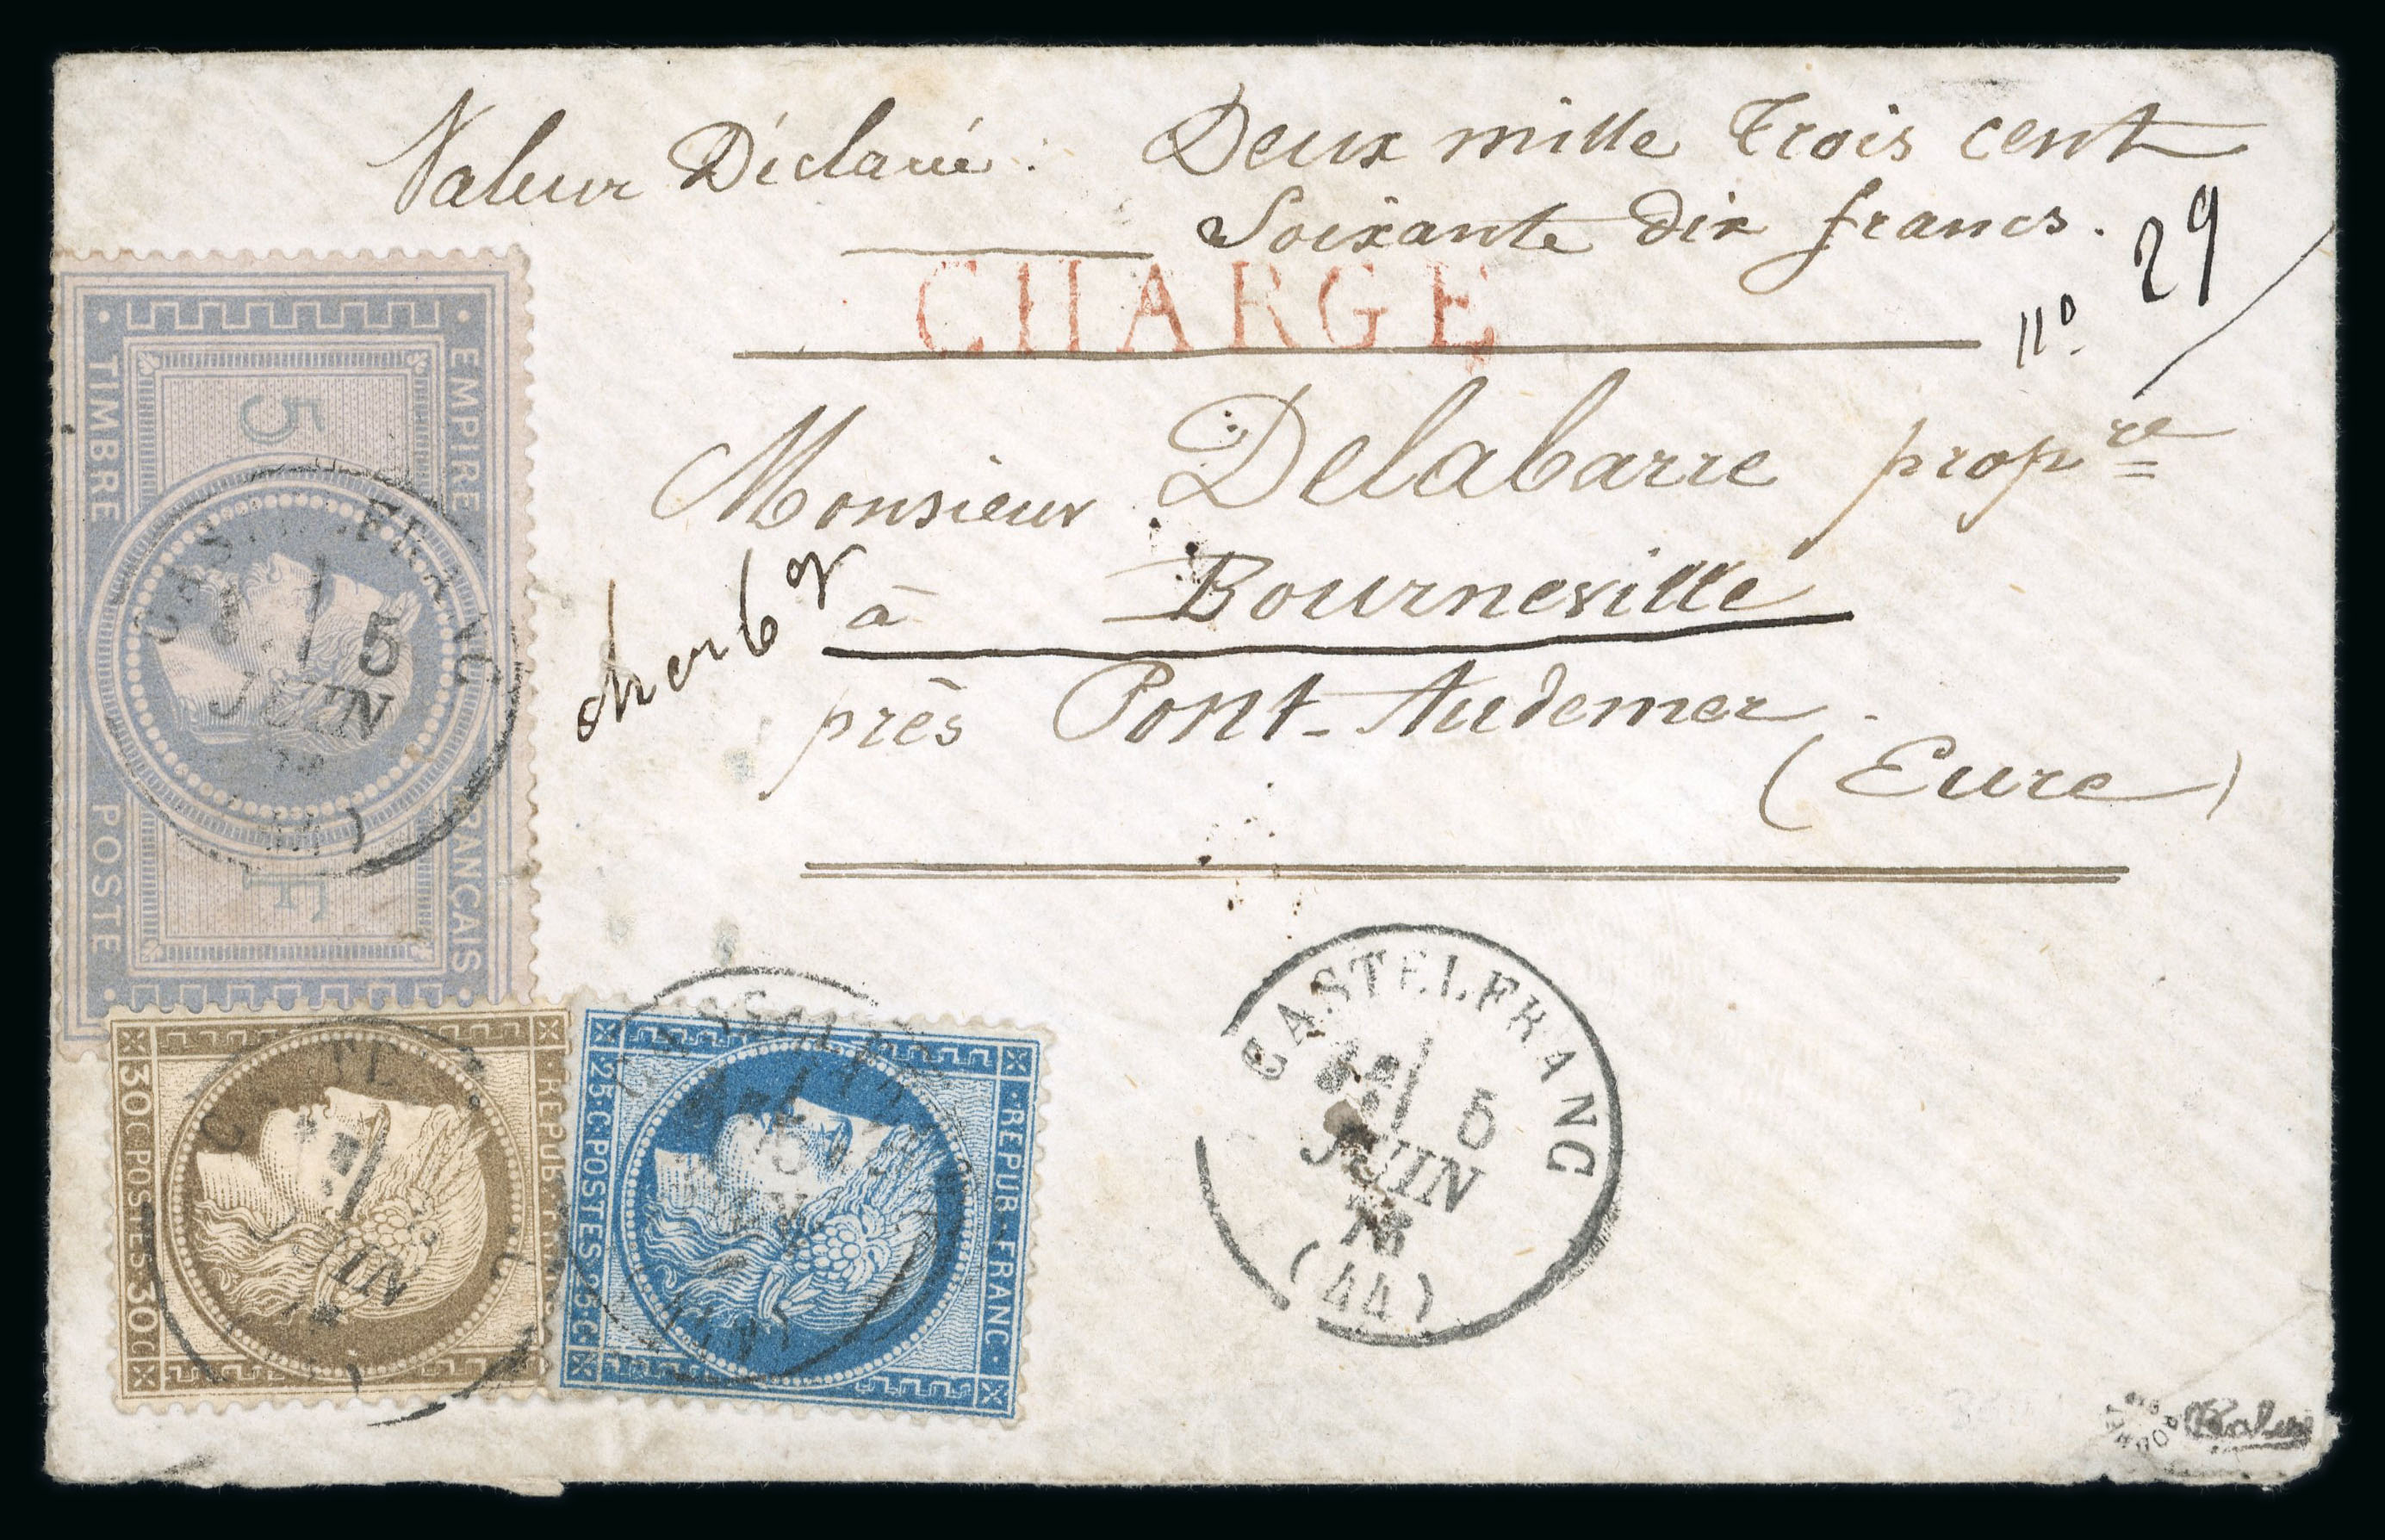 Valeur Déclarée : Deux mille Trois cent
Soixante dix francs.
n° 29
CHARGE
Monsieur Delabarre propre
à Bourneville
près Pont-Audemer.
(Eure)
EMPIRE FRANCAIS
TIMBRE POSTE
5 F
5
JUIN
CASTELFRANC
5
JUIN
(44)
30 C POSTES 30 C
REPUB
JUIN
25 C POSTES 25 C
REPUB FRANC
5